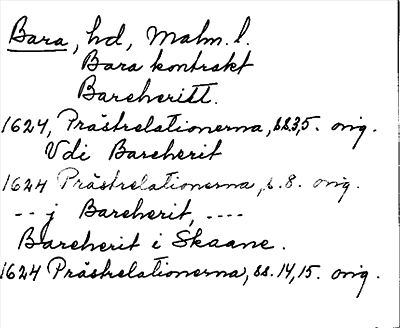 Bara, hd, Malm. l.
Bara kontrakt
Bareheritt.
1624, Prästrelationerna, ss.3,5. orig.
Vdi Bareherit
1624 Prästrelationerna, s.8. orig.
-- j Bareherit, ----
Bareherit i Skaane.
1624 Prästrelationerna, ss.14,15. orig.